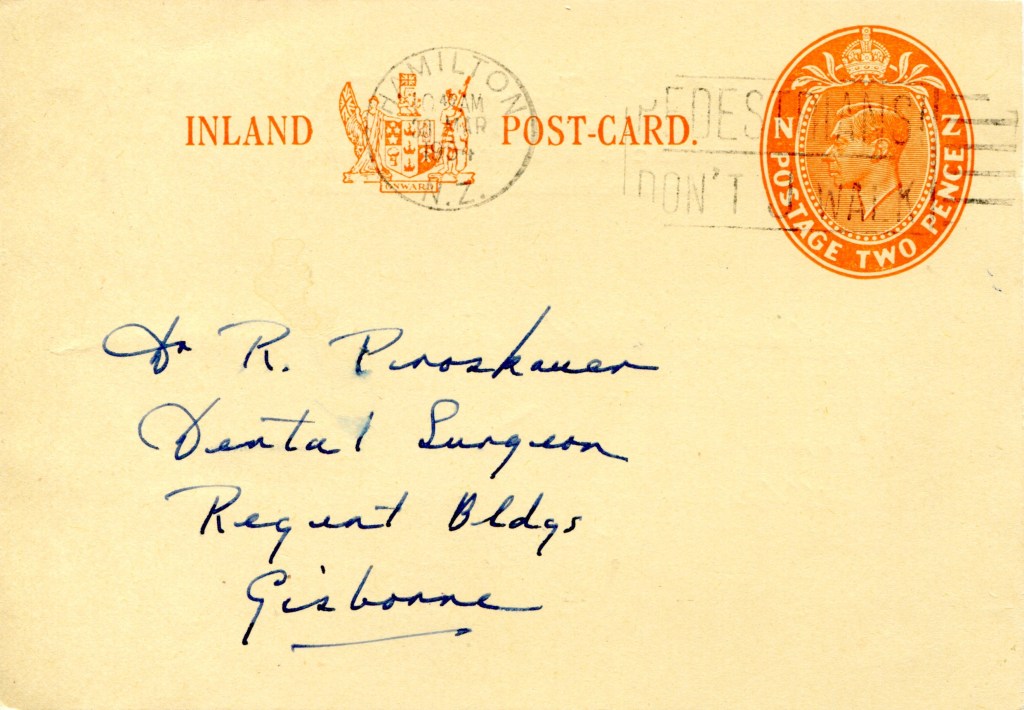 INLAND POST-CARD.
ONWARD
HAMILTON
MAR
N.Z.
PEDESTRIANS!
DON'T J WALK!
N Z
POSTAGE TWO PENCE
Dr R. Piroskauer
Dental Surgeon
Regent Bldgs
Gisborne